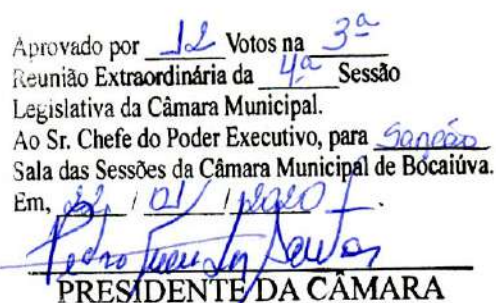 Aprovado por 12 Votos na 3ª
Reunião Extraordinária da 4ª Sessão
Legislativa da Câmara Municipal.
Ao Sr. Chefe do Poder Executivo, para Sanção
Sala das Sessões da Câmara Municipal de Bocaiúva.
Em, 22 / 01 / 2020.
Pedro
PRESIDENTE DA CÂMARA